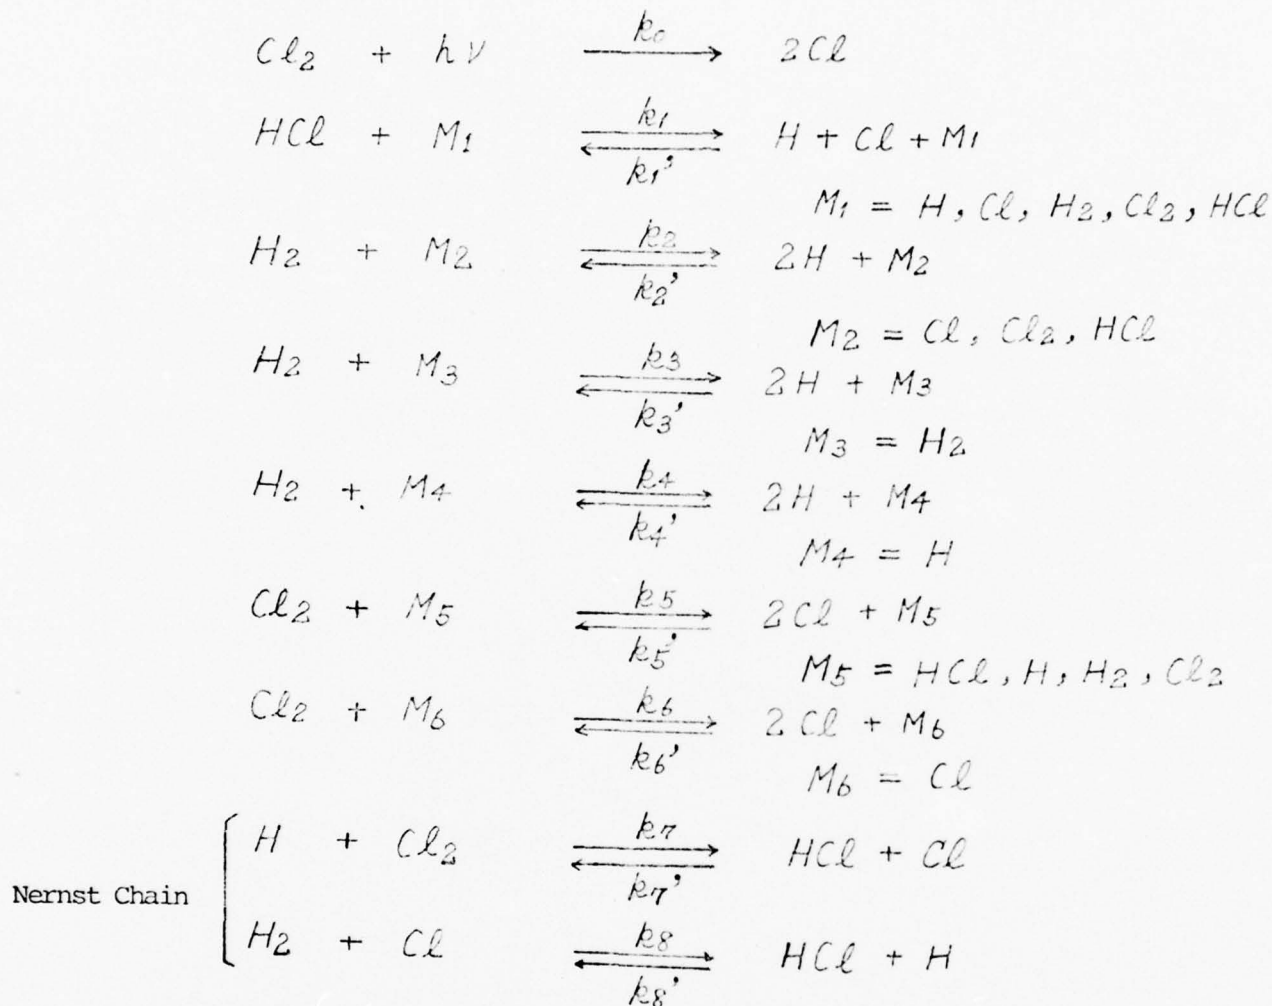 Cl2 + hν —k0→ 2Cl
HCl + M1 ⇄ k1 k1' H + Cl + M1
M1 = H, Cl, H2, Cl2, HCl
H2 + M2 ⇄ k2 k2' 2H + M2
M2 = Cl, Cl2, HCl
H2 + M3 ⇄ k3 k3' 2H + M3
M3 = H2
H2 + M4 ⇄ k4 k4' 2H + M4
M4 = H
Cl2 + M5 ⇄ k5 k5' 2Cl + M5
M5 = HCl, H, H2, Cl2
Cl2 + M6 ⇄ k6 k6' 2Cl + M6
M6 = Cl
Nernst Chain
H + Cl2 ⇄ k7 k7' HCl + Cl
H2 + Cl ⇄ k8 k8' HCl + H